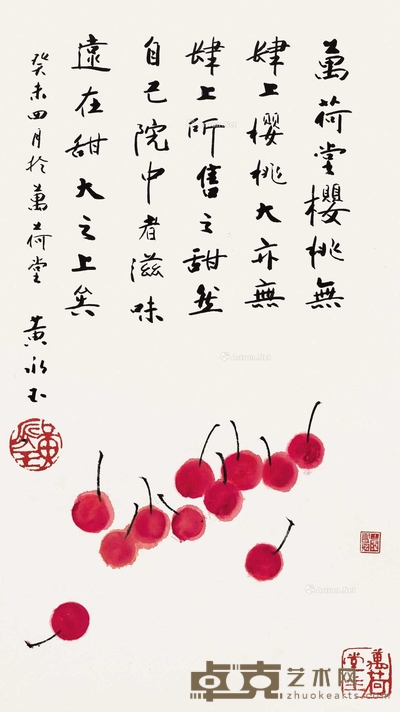 萬荷堂櫻桃無
肆上櫻桃大亦無
肆上所售之甜然
自己院中者滋味
遠在甜大之上矣
癸未四月於萬荷堂 黃永玉
黃永玉
萬荷堂
卓克艺术网
zhuokearts.com